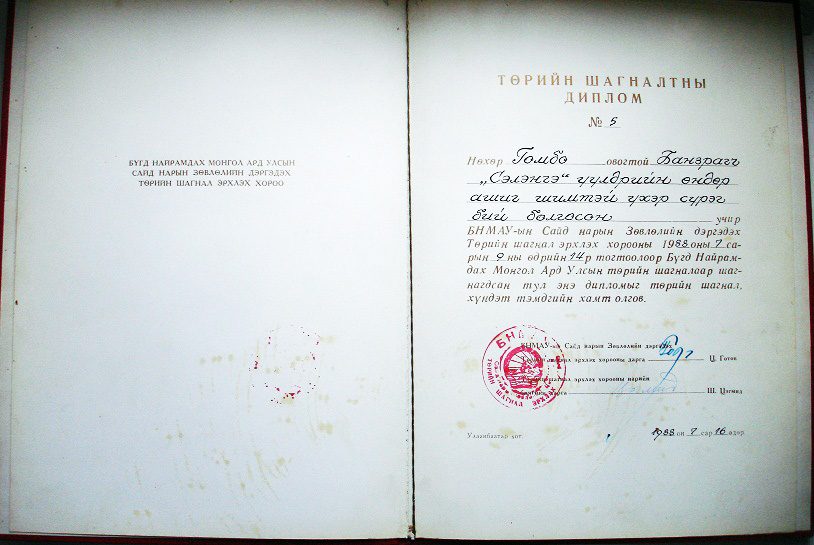 БҮГД НАЙРАМДАХ МОНГОЛ АРД УЛСЫН
САЙД НАРЫН ЗӨВЛӨЛИЙН ДЭРГЭДЭХ
ТӨРИЙН ШАГНАЛ ЭРХЛЭХ ХОРОО
ТӨРИЙН ШАГНАЛТНЫ
ДИПЛОМ
№ 5
Нөхөр Гомбо овогтой Банзрагч
„Сэлэнгэ“ үүлдрийн өндөр
ашиг шимтэй үхэр сүрэг
бий болгосон учир
БНМАУ-ын Сайд нарын Зөвлөлийн дэргэдэх
Төрийн шагнал эрхлэх хорооны 1988 оны 7 са-
рын 9 ны өдрийн 14 р тогтоолоор Бүгд Найрам-
дах Монгол Ард Улсын төрийн шагналаар шаг-
нагдсан тул энэ дипломыг төрийн шагнал,
хүндэт тэмдгийн хамт олгов.
БНМАУ-ын Сайд нарын Зөвлөлийн дэргэдэх
шагнал эрхлэх хорооны дарга Ц. Готов
шагнал эрхлэх хорооны нарийн
дарга Ш. Цэгмид
БНМАУ
ТӨРИЙН ШАГНАЛ ЭРХЛЭХ
Улаанбаатар хот. 1988 он 7 сар 16 өдөр